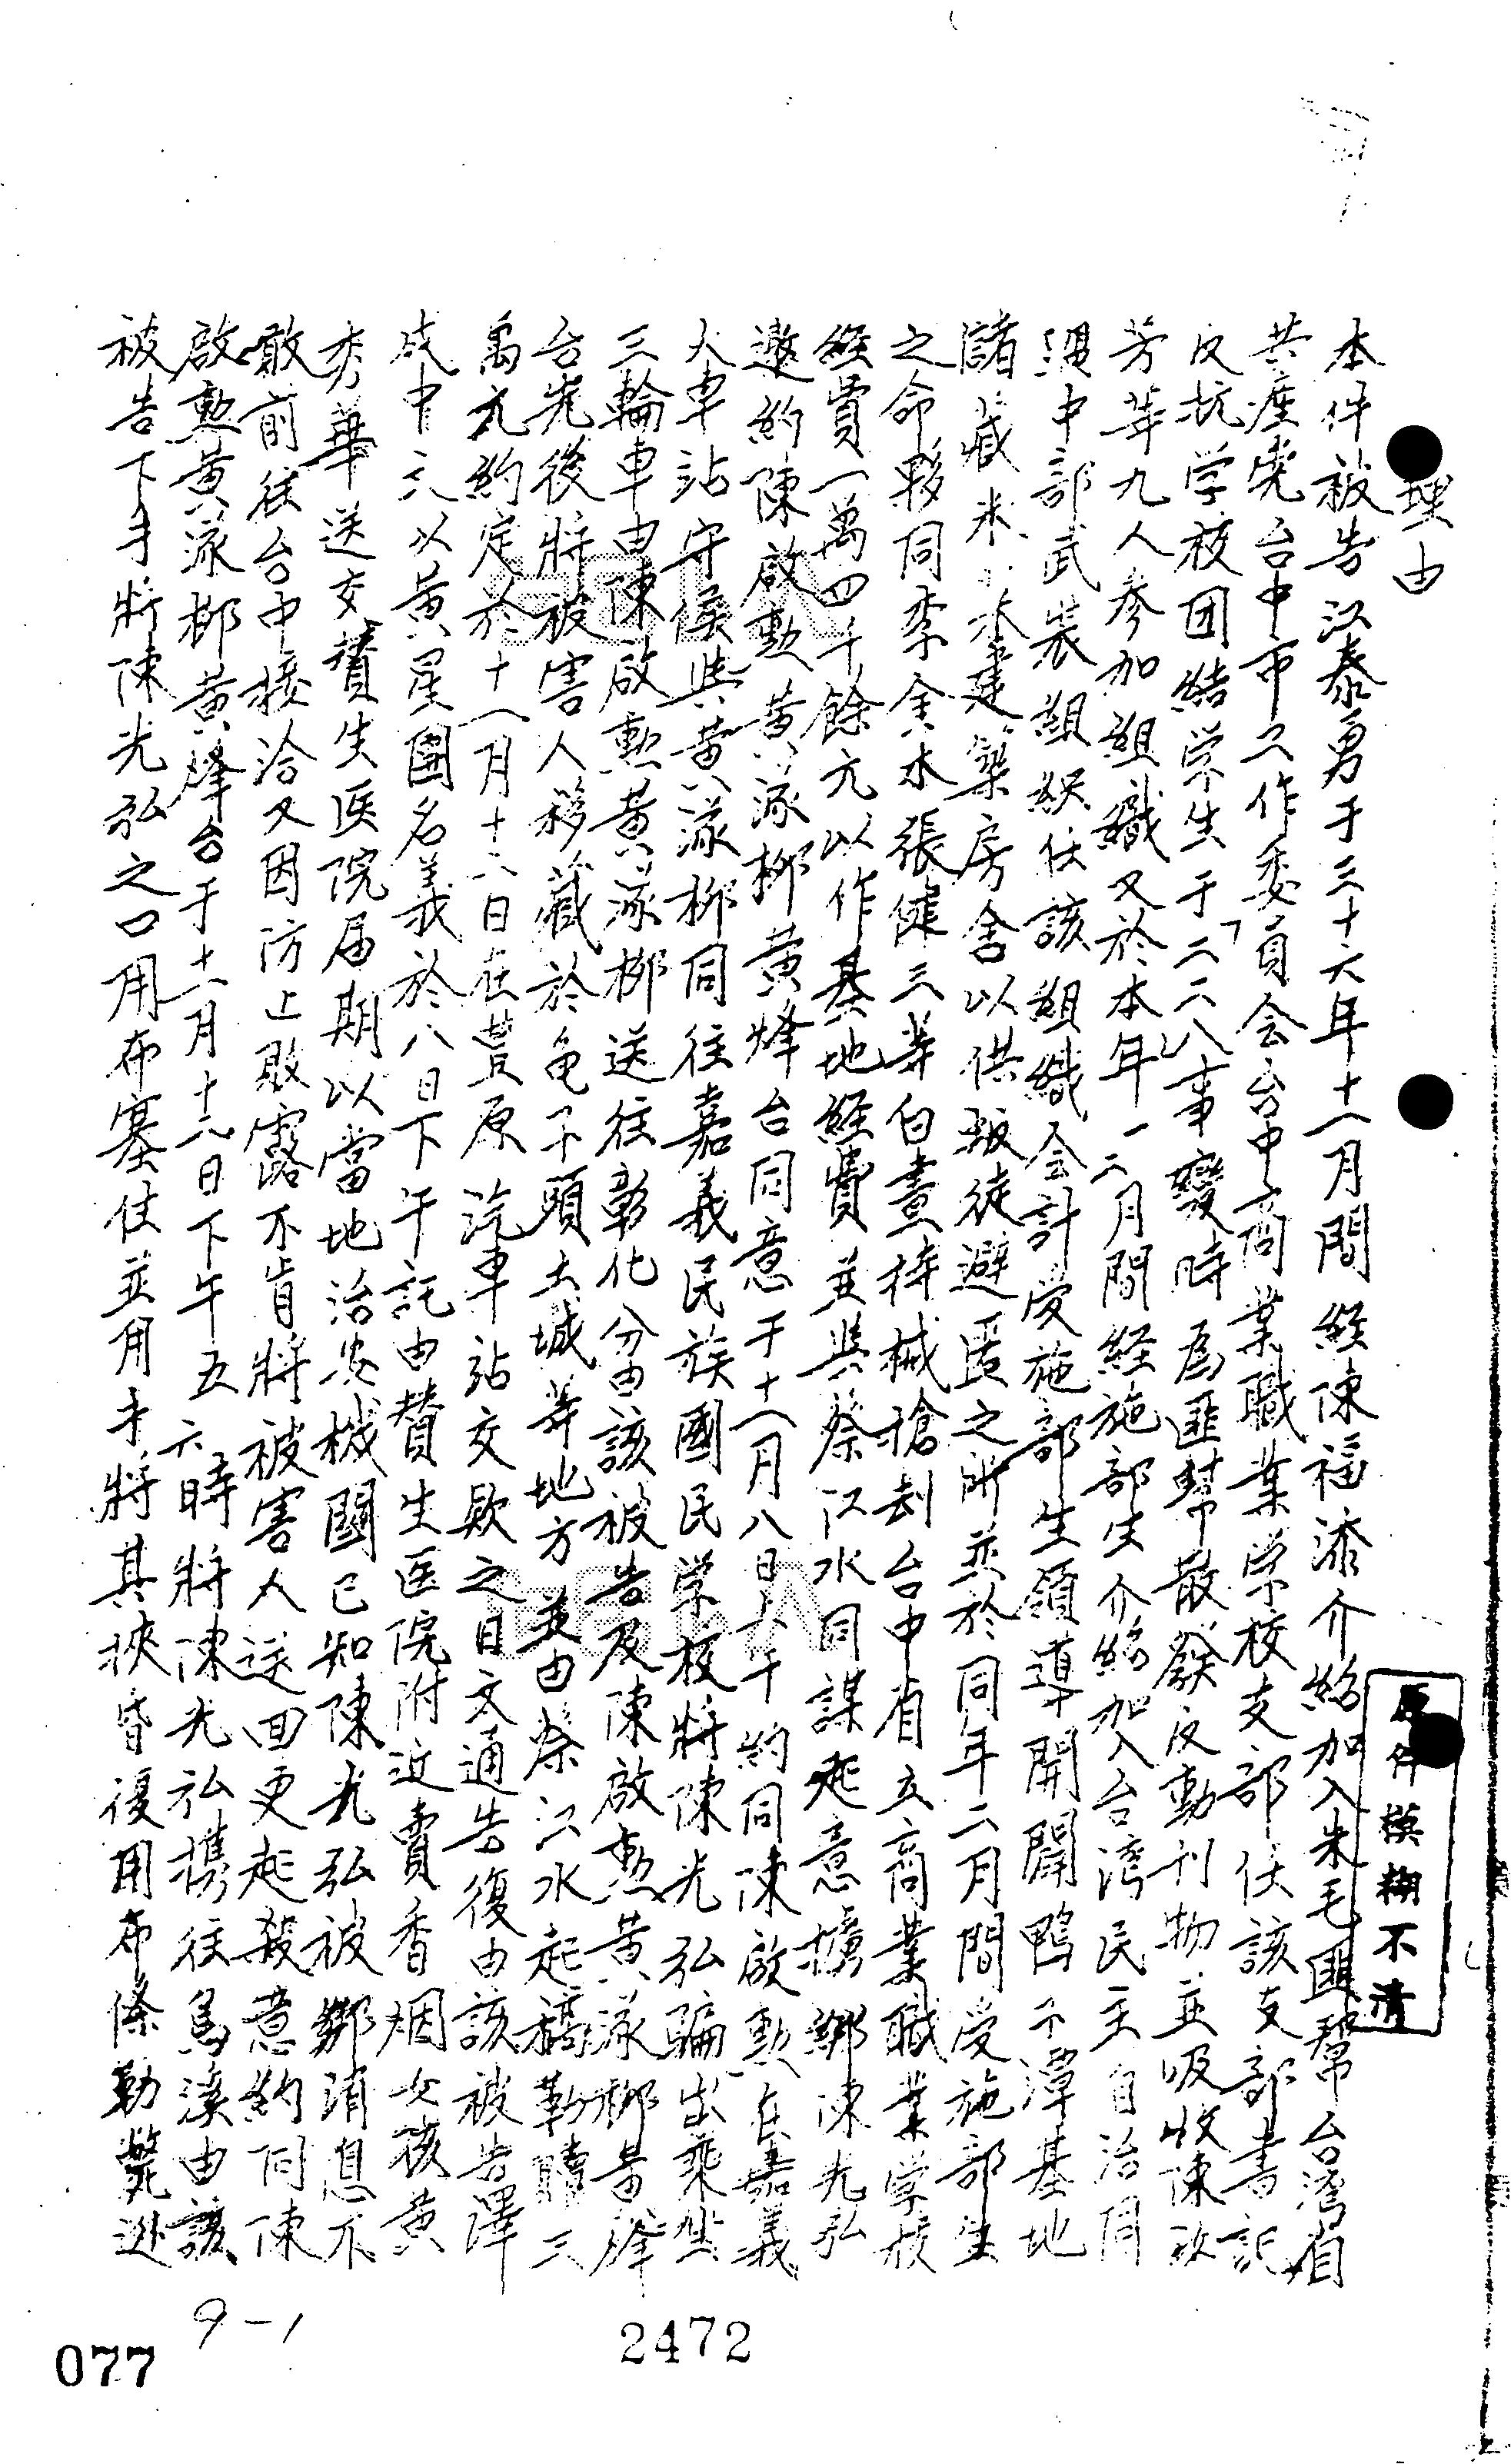 理由
本件被告江泰勇于三十六年十一月間經陳福添介紹加入朱毛匪幫台灣省
共產党台中市工作委員会台中商業職業学校支部任該支部書記
反抗学校团結学生于「二二八」事變時為匪幫散發反動刊物並吸收陳啟
芳等九人参加組織又於本年一二月間経施部生介紹加入台湾民主自治同
盟中部武装組織任該組織会計受施部生領導開闢鴨子潭基地
儲藏米 建築房舍以供叛徒避匿之所並於同年二月間受施部生
之命夥同李金木張健三等白晝持械搶刧台中省立商業職業学校
經費一萬四千餘元以作基地經費並與蔡江水同謀起意擄綁陳光弘
邀約陳啟勳黃添柳黃烽台同意于十一月八日上午約同陳啟勳在嘉義
火車站守候與黃添柳同往嘉義民族國民学校將陳光弘騙出乘坐
三輪車由陳啟勳黃添柳送往彰化分由該被告及陳啟勳黃添柳黃烽
台先後將被害人移藏於龟子頭土城等地方並由蔡江水起稿勒贖三
萬元約定於十一月十六日在豊原汽車站交欵之日文通告復由該被告譯
成中文以黃星團名義於八日下午託由賛生医院附近賣香烟女孩黃
秀華送交賛生医院届期以當地治安機關已知陳光弘被綁消息不
敢前往台中接洽又因防止敗露不肯將被害人送回更起殺意約同陳
啟勳黃添柳黃烽台于十一月十六日下午五六時將陳光弘携往烏溪由該
被告下手將陳光弘之口用布塞住並用手將其挾昏後用布條勒斃迯
原件模糊不清
9-1
077
2472